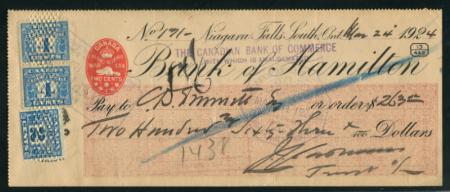 No 171- Niagara Falls South, Ont Mar 24 1924
THE CANADIAN BANK OF COMMERCE
WITH WHICH IS AMALGAMATED
CANADA
WAR TAX
TWO CENTS
Bank of Hamilton
Pay to C.D. Emmett Esq or order $263.00
Two Hundred & Sixty-Three Dollars
1438